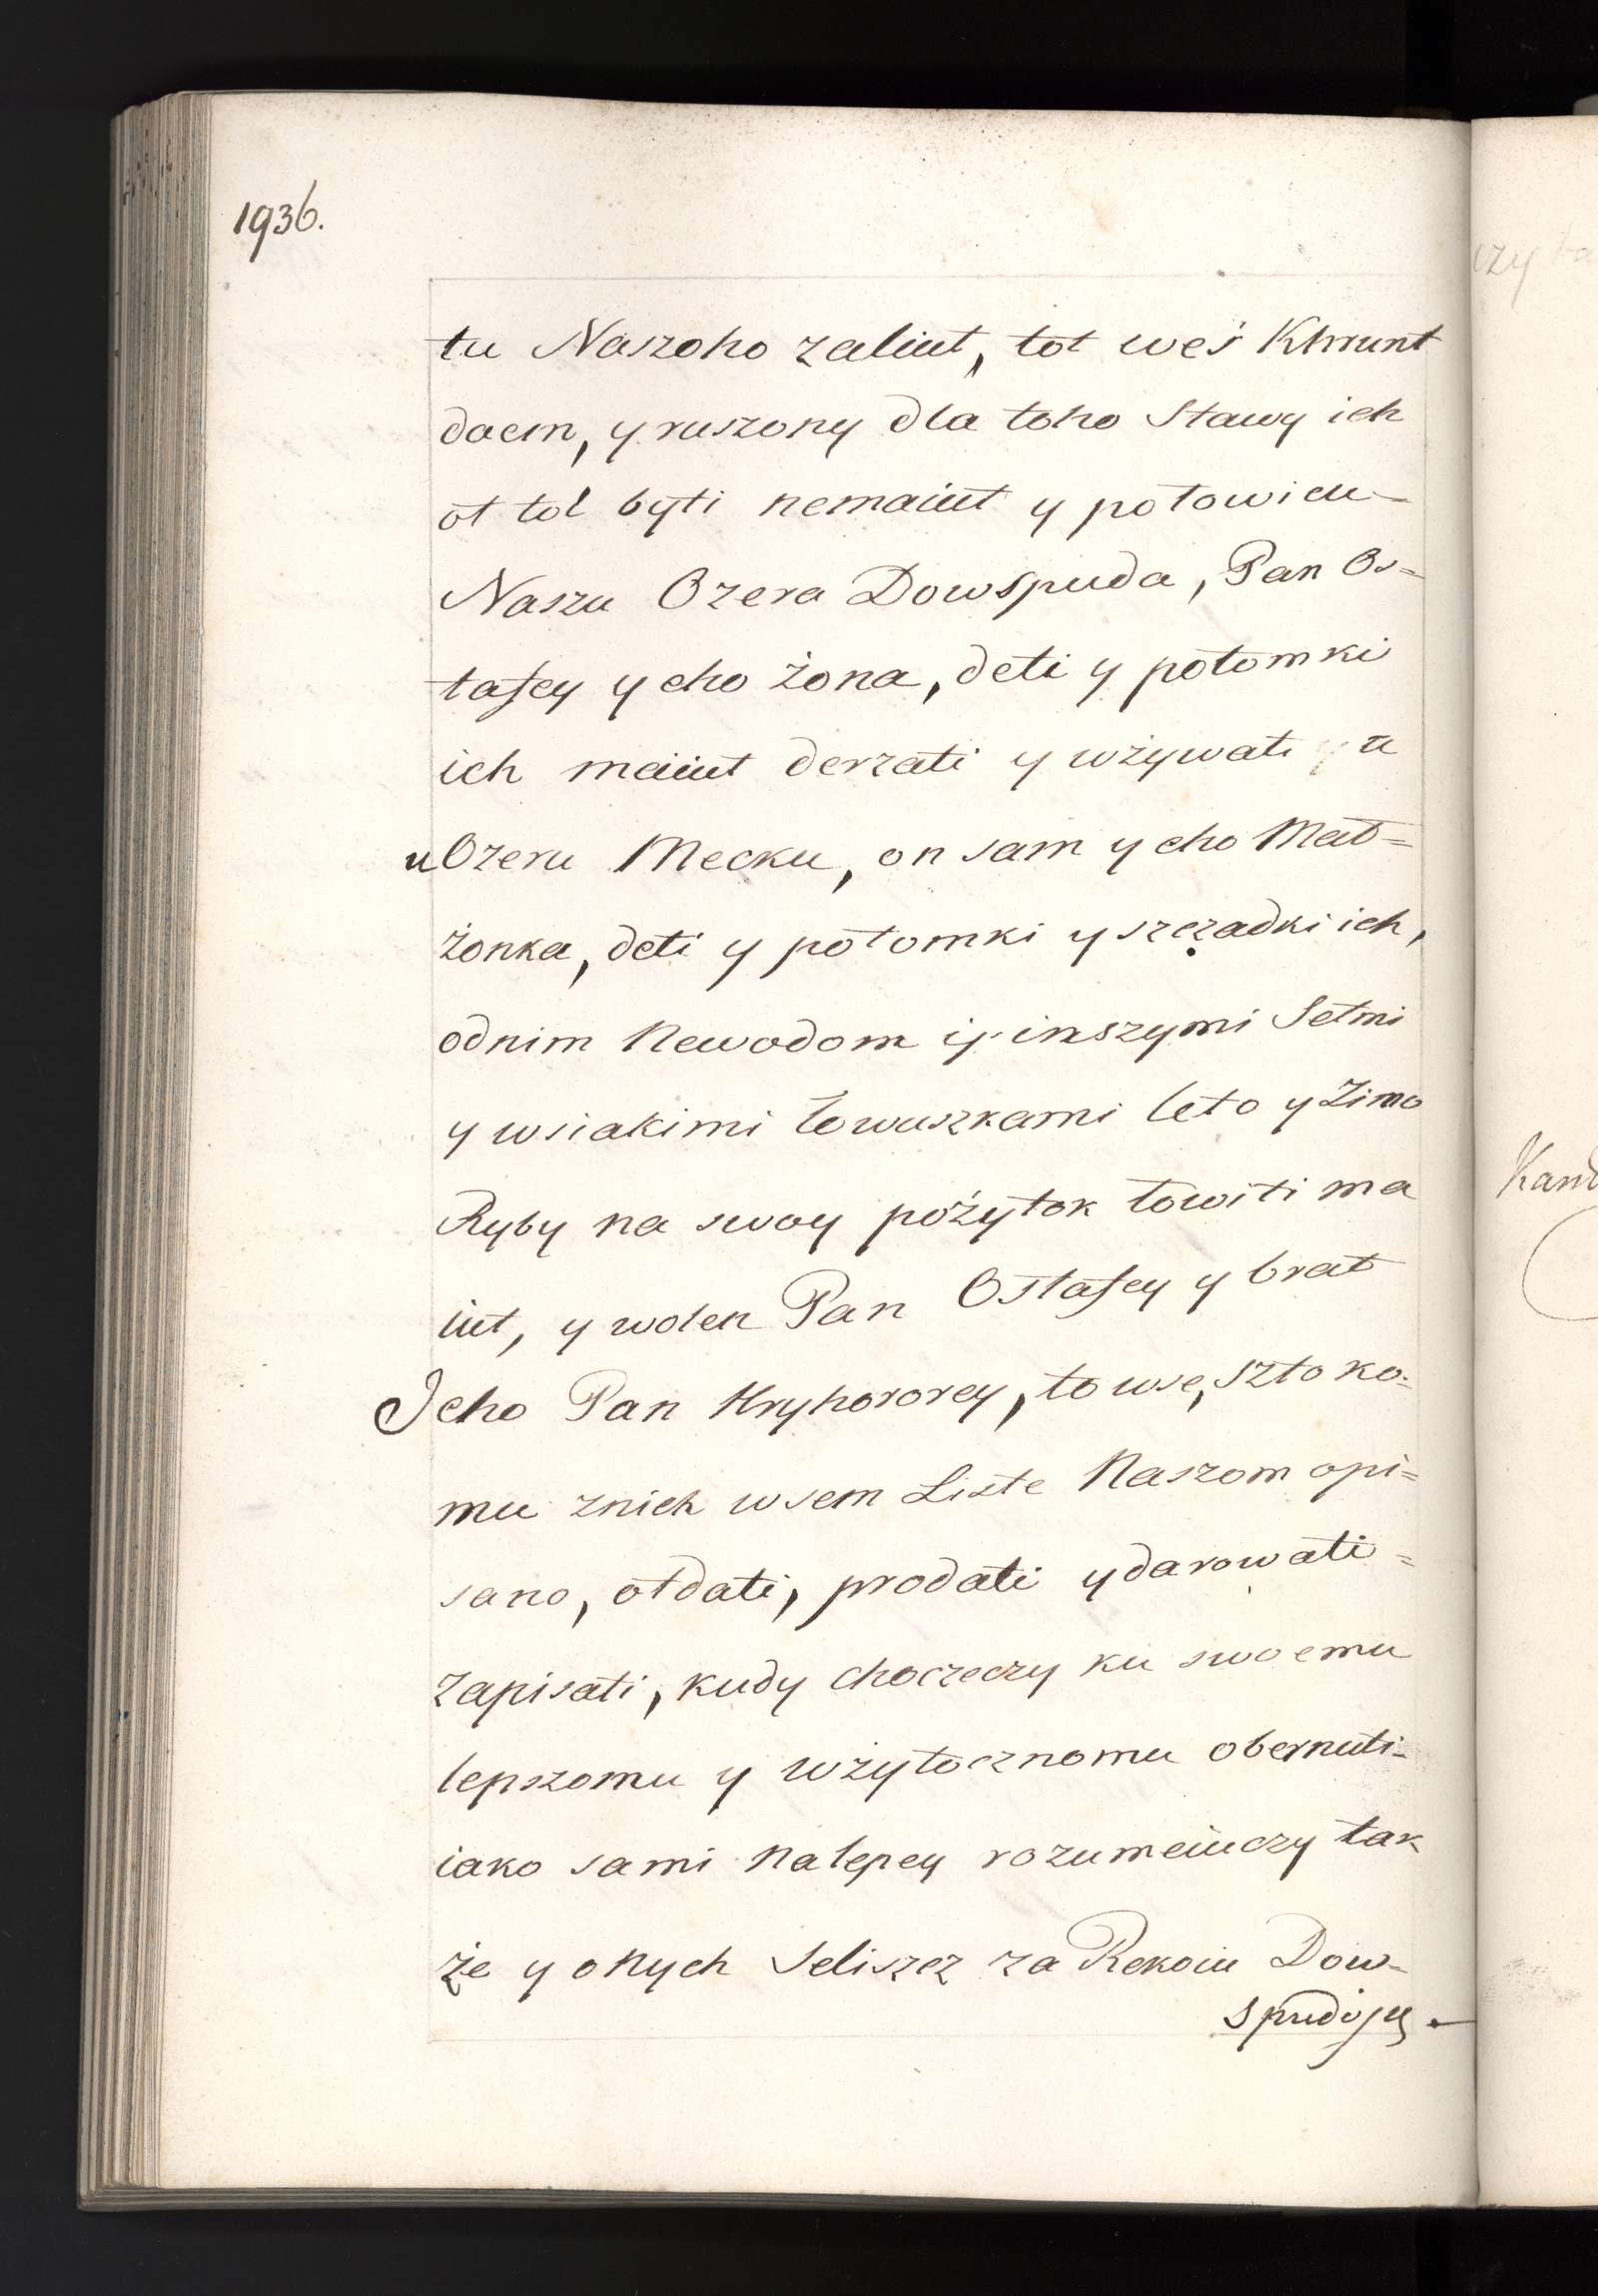 1936.
tu Naszoho zaliut, tot weś Khrunt
daem, y ruszony dla toho Stawy ich
ot tol byti nemaiut y połowicu
Naszu Ozera Dowspuda, Pan Os=
tafey y eho żona, deti y potomki
ich maiut derzati y wżywati y u
u Ozeru Mecku, on sam y eho Mał=
żonka, deti y potomki y szczadki ich,
odnim Newodom y inszymi Setmi
y wsiakimi łowuszkami leto y Zimo
Ryby na swoy pożytok łowiti ma
iut, y wolen Pan Ostafey y brat
Jeho Pan Hryhororey, to wse, szto ko=
mu znich wsem Liste Naszom opi=
sano, otdati, prodati y darowati =
zapisati, kudy choczeczy ku swoemu
lepszomu y wżytocznomu obernuti
iako sami nalepey rozumeiuczy tak
że y onych Seliszcz za Rekoiu Dow-
spudoju